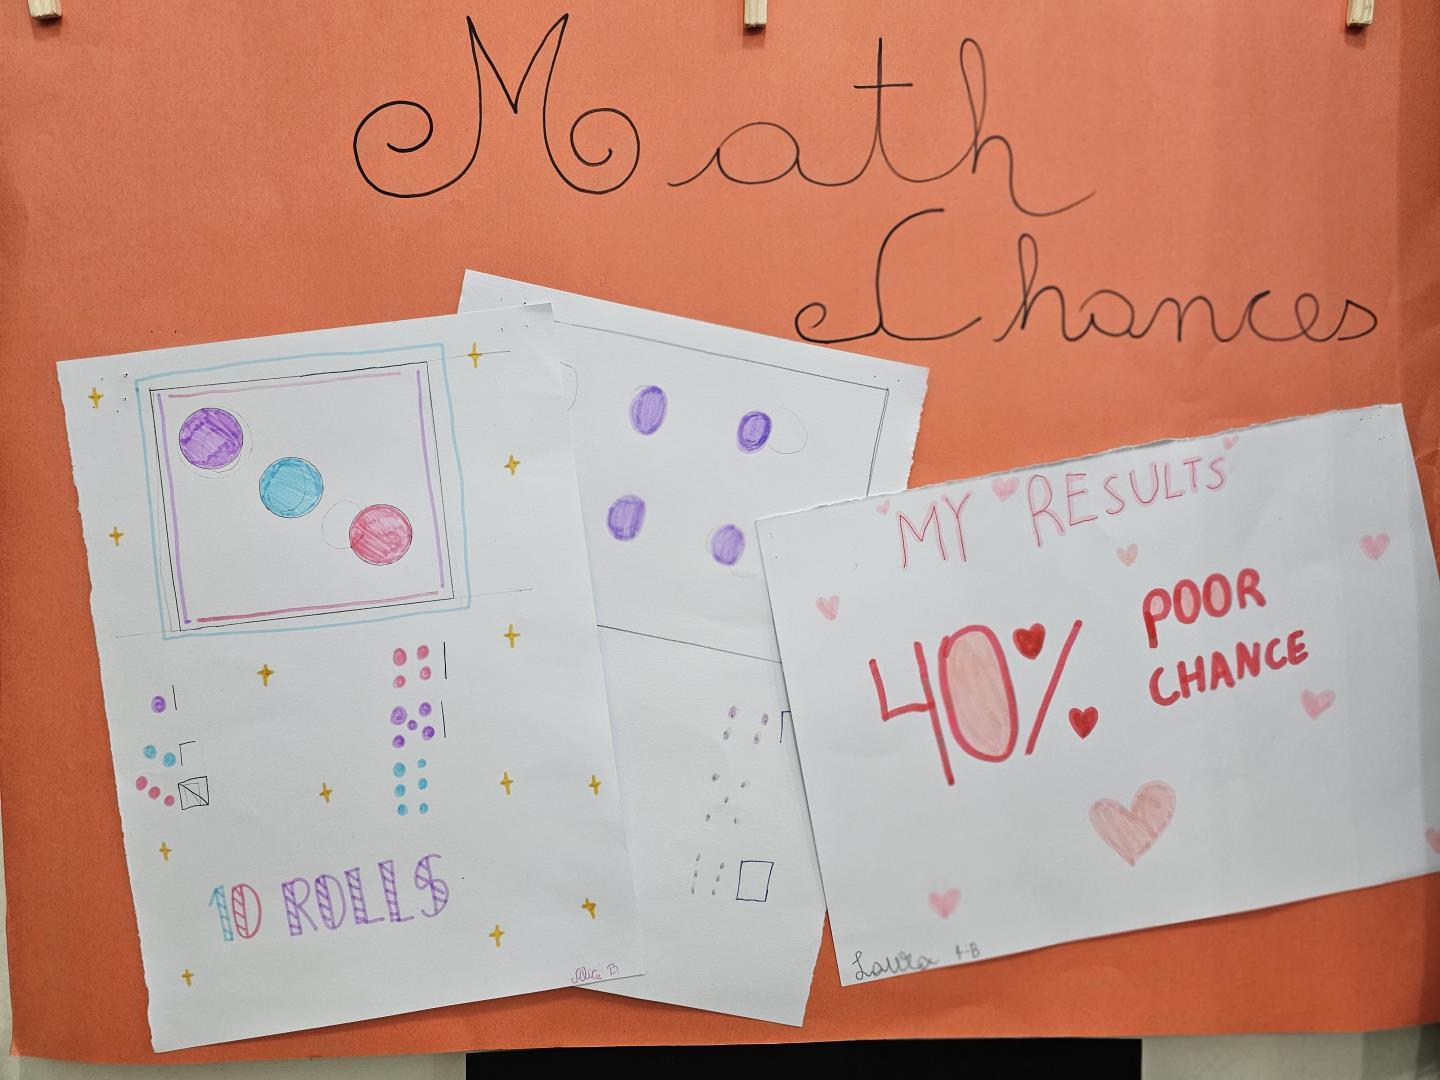 Math
Chances
10 ROLLS
Alice B.
MY RESULTS
40%
POOR
CHANCE
Laura